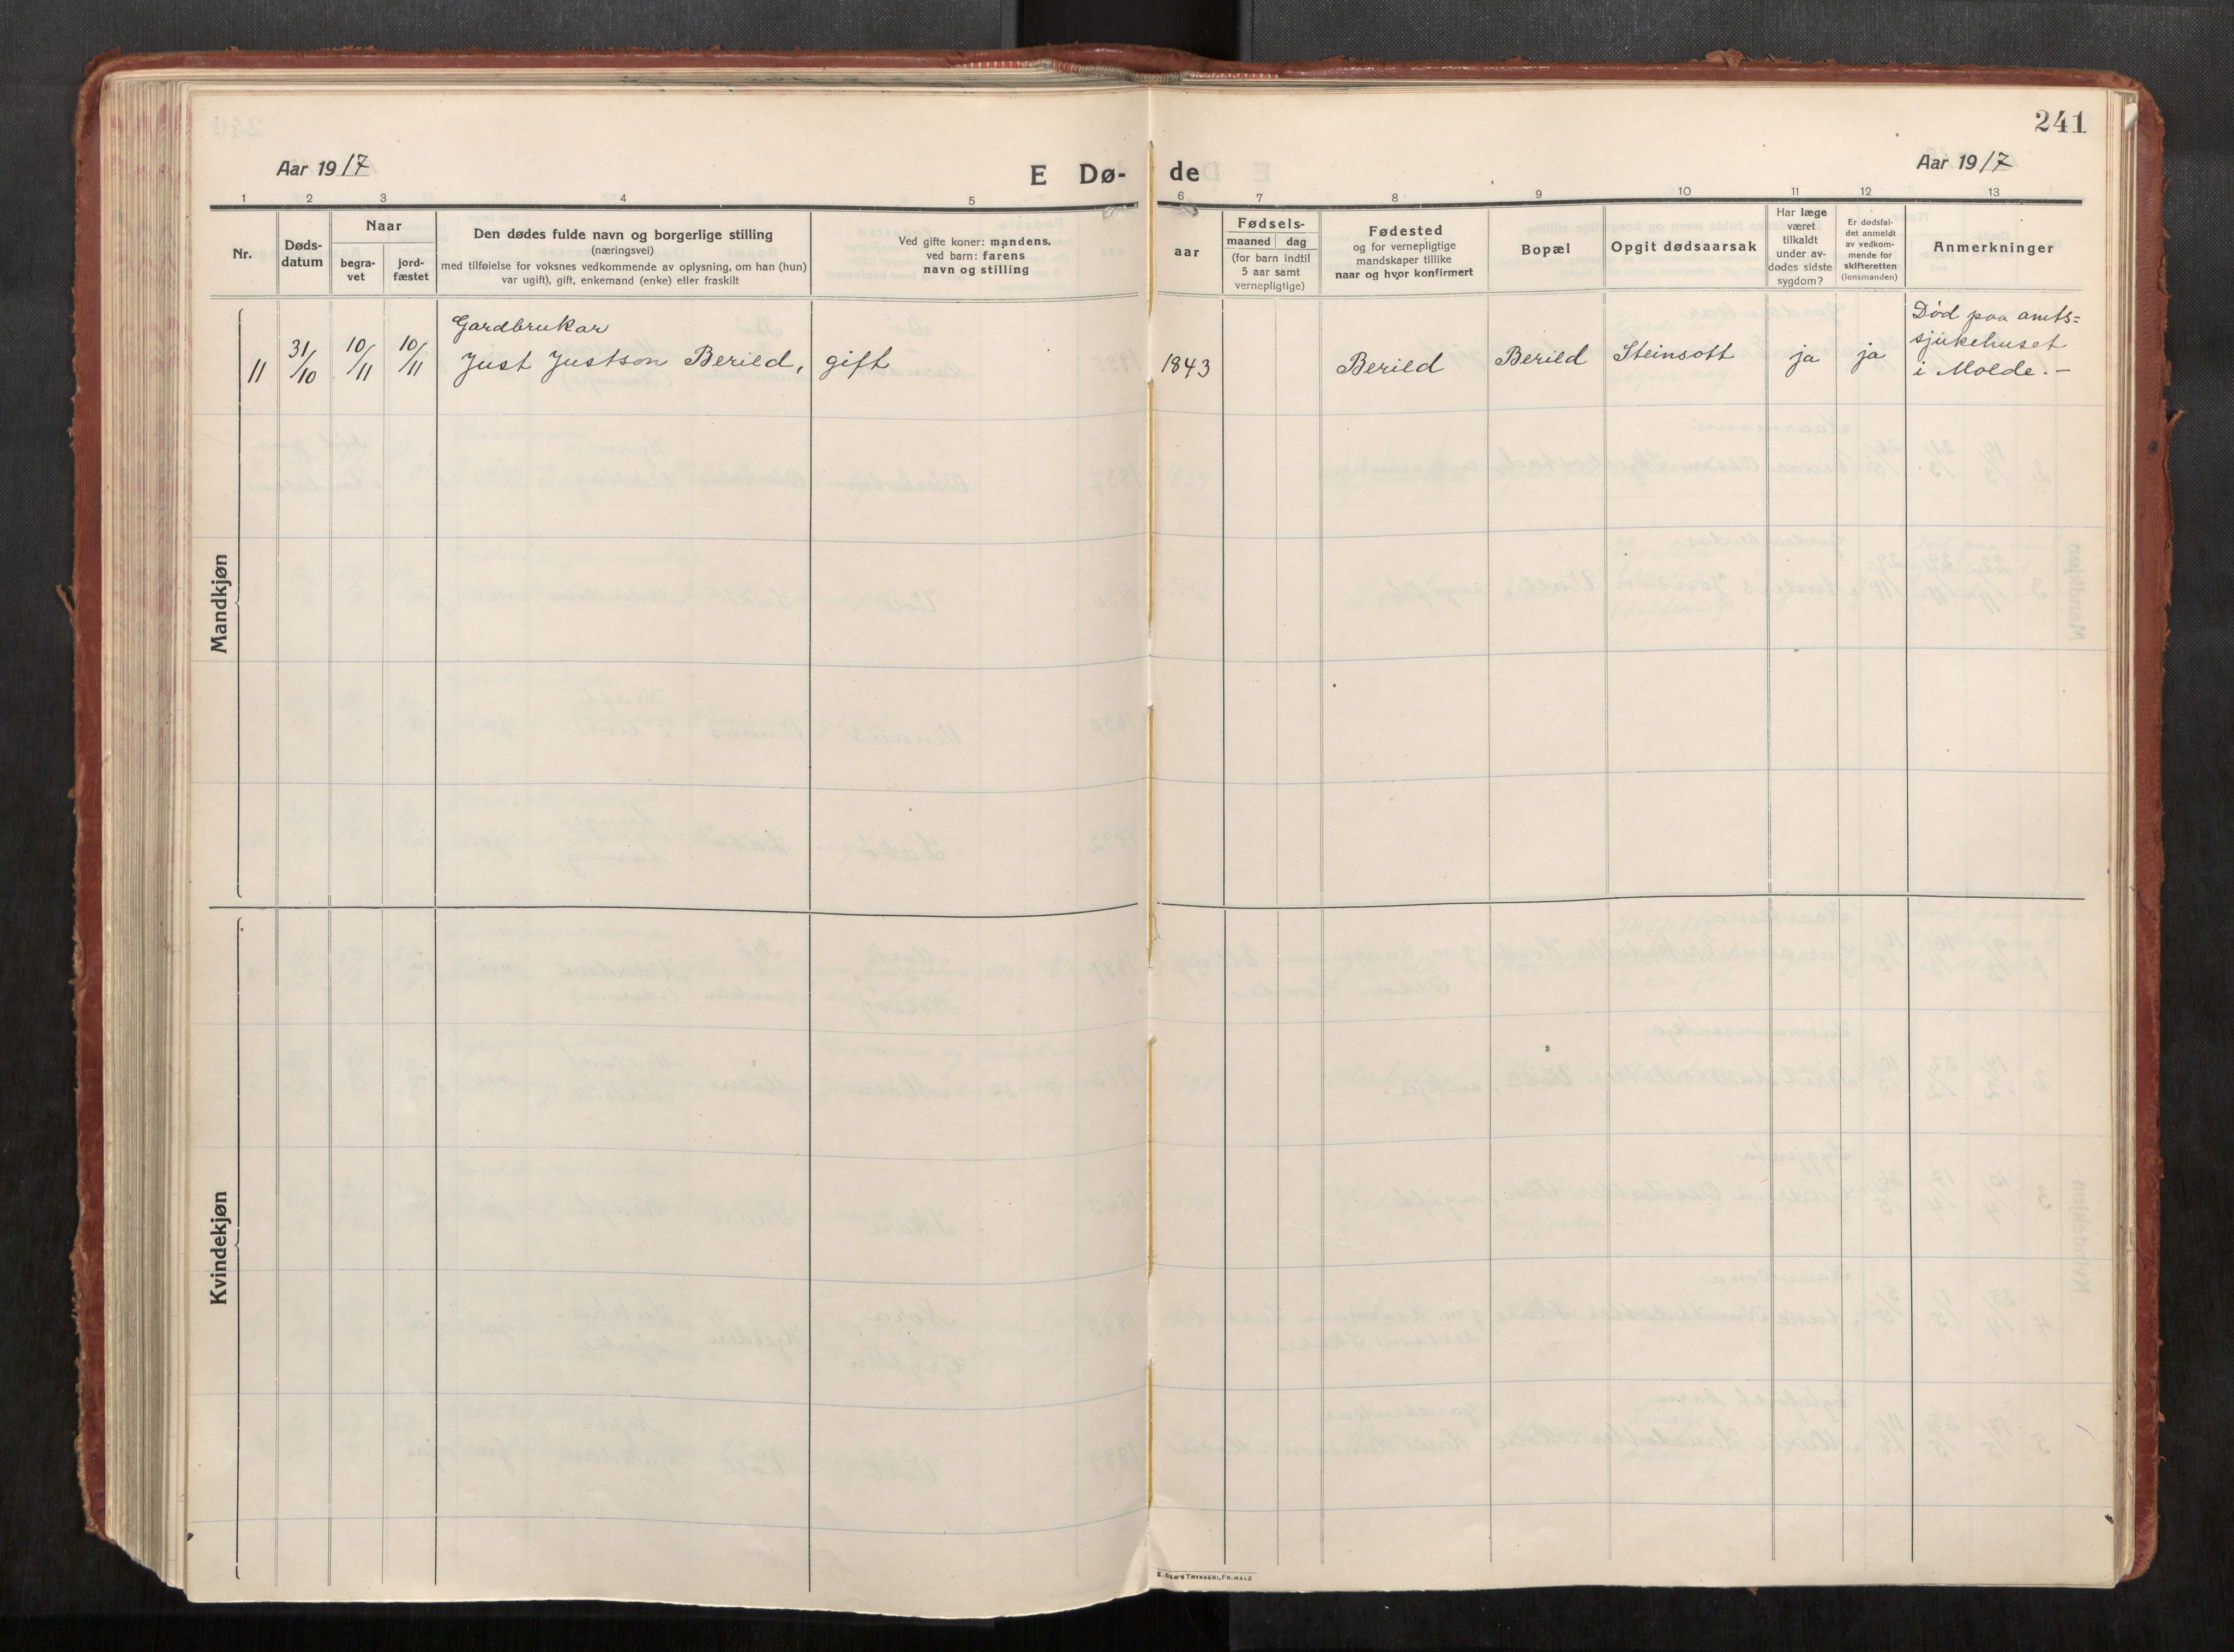 241
Aar 1917
E Dø-
de
Aar 1917
1 2 3 4 5 6 7 8 9 10 11 12 13
Nr.
Døds-
datum
Naar
begra-
vet
jord-
fæstet
Den dødes fulde navn og borgerlige stilling
(næringsvei)
med tilføielse for voksnes vedkommende av oplysning, om han (hun)
var ugift), gift, enkemand (enke) eller fraskilt
Ved gifte koner: mandens,
ved barn: farens
navn og stilling
aar
Fødsels-
maaned dag
(for barn indtil
5 aar samt
vernepligtige)
Fødested
og for vernepligtige
mandskaper tillike
naar og hvor konfirmert
Bopæl
Opgit dødsaarsak
Har læge
været
tilkaldt
under av-
dødes sidste
sygdom?
Er dødsfal-
det anmeldt
av vedkom-
mende for
skifteretten
(lensmanden)
Anmerkninger
Mandkjøn
11
31/10
10/11
10/11
Gardbrukar
Just Justson Berild, gift
1843
Berild
Berild
Steinsott
ja
ja
Død paa amts=
sjukehuset
i Molde.-
Kvindekjøn